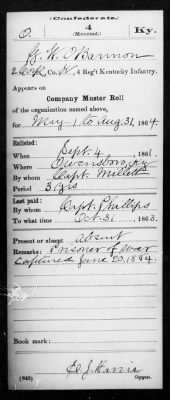 (Confederate.)
O. 4 Ky.
(Mounted.)
W. O'Bannon
2 Corp, Co. K, 4 Reg't Kentucky Infantry.
Appears on
Company Muster Roll
of the organization named above,
for May 1 to Aug 31, 1864.
Enlisted:
When Sept. 4, 1861.
Where Owensboro, Ky
By whom Capt. Millett
Period 3 yrs
Last paid:
By whom Capt. Phillips
To what time Oct. 31, 1863.
Present or absent Absent
Remarks: Prisoner of war
Captured June 20, 1864.
Book mark:
(642) Copyist.